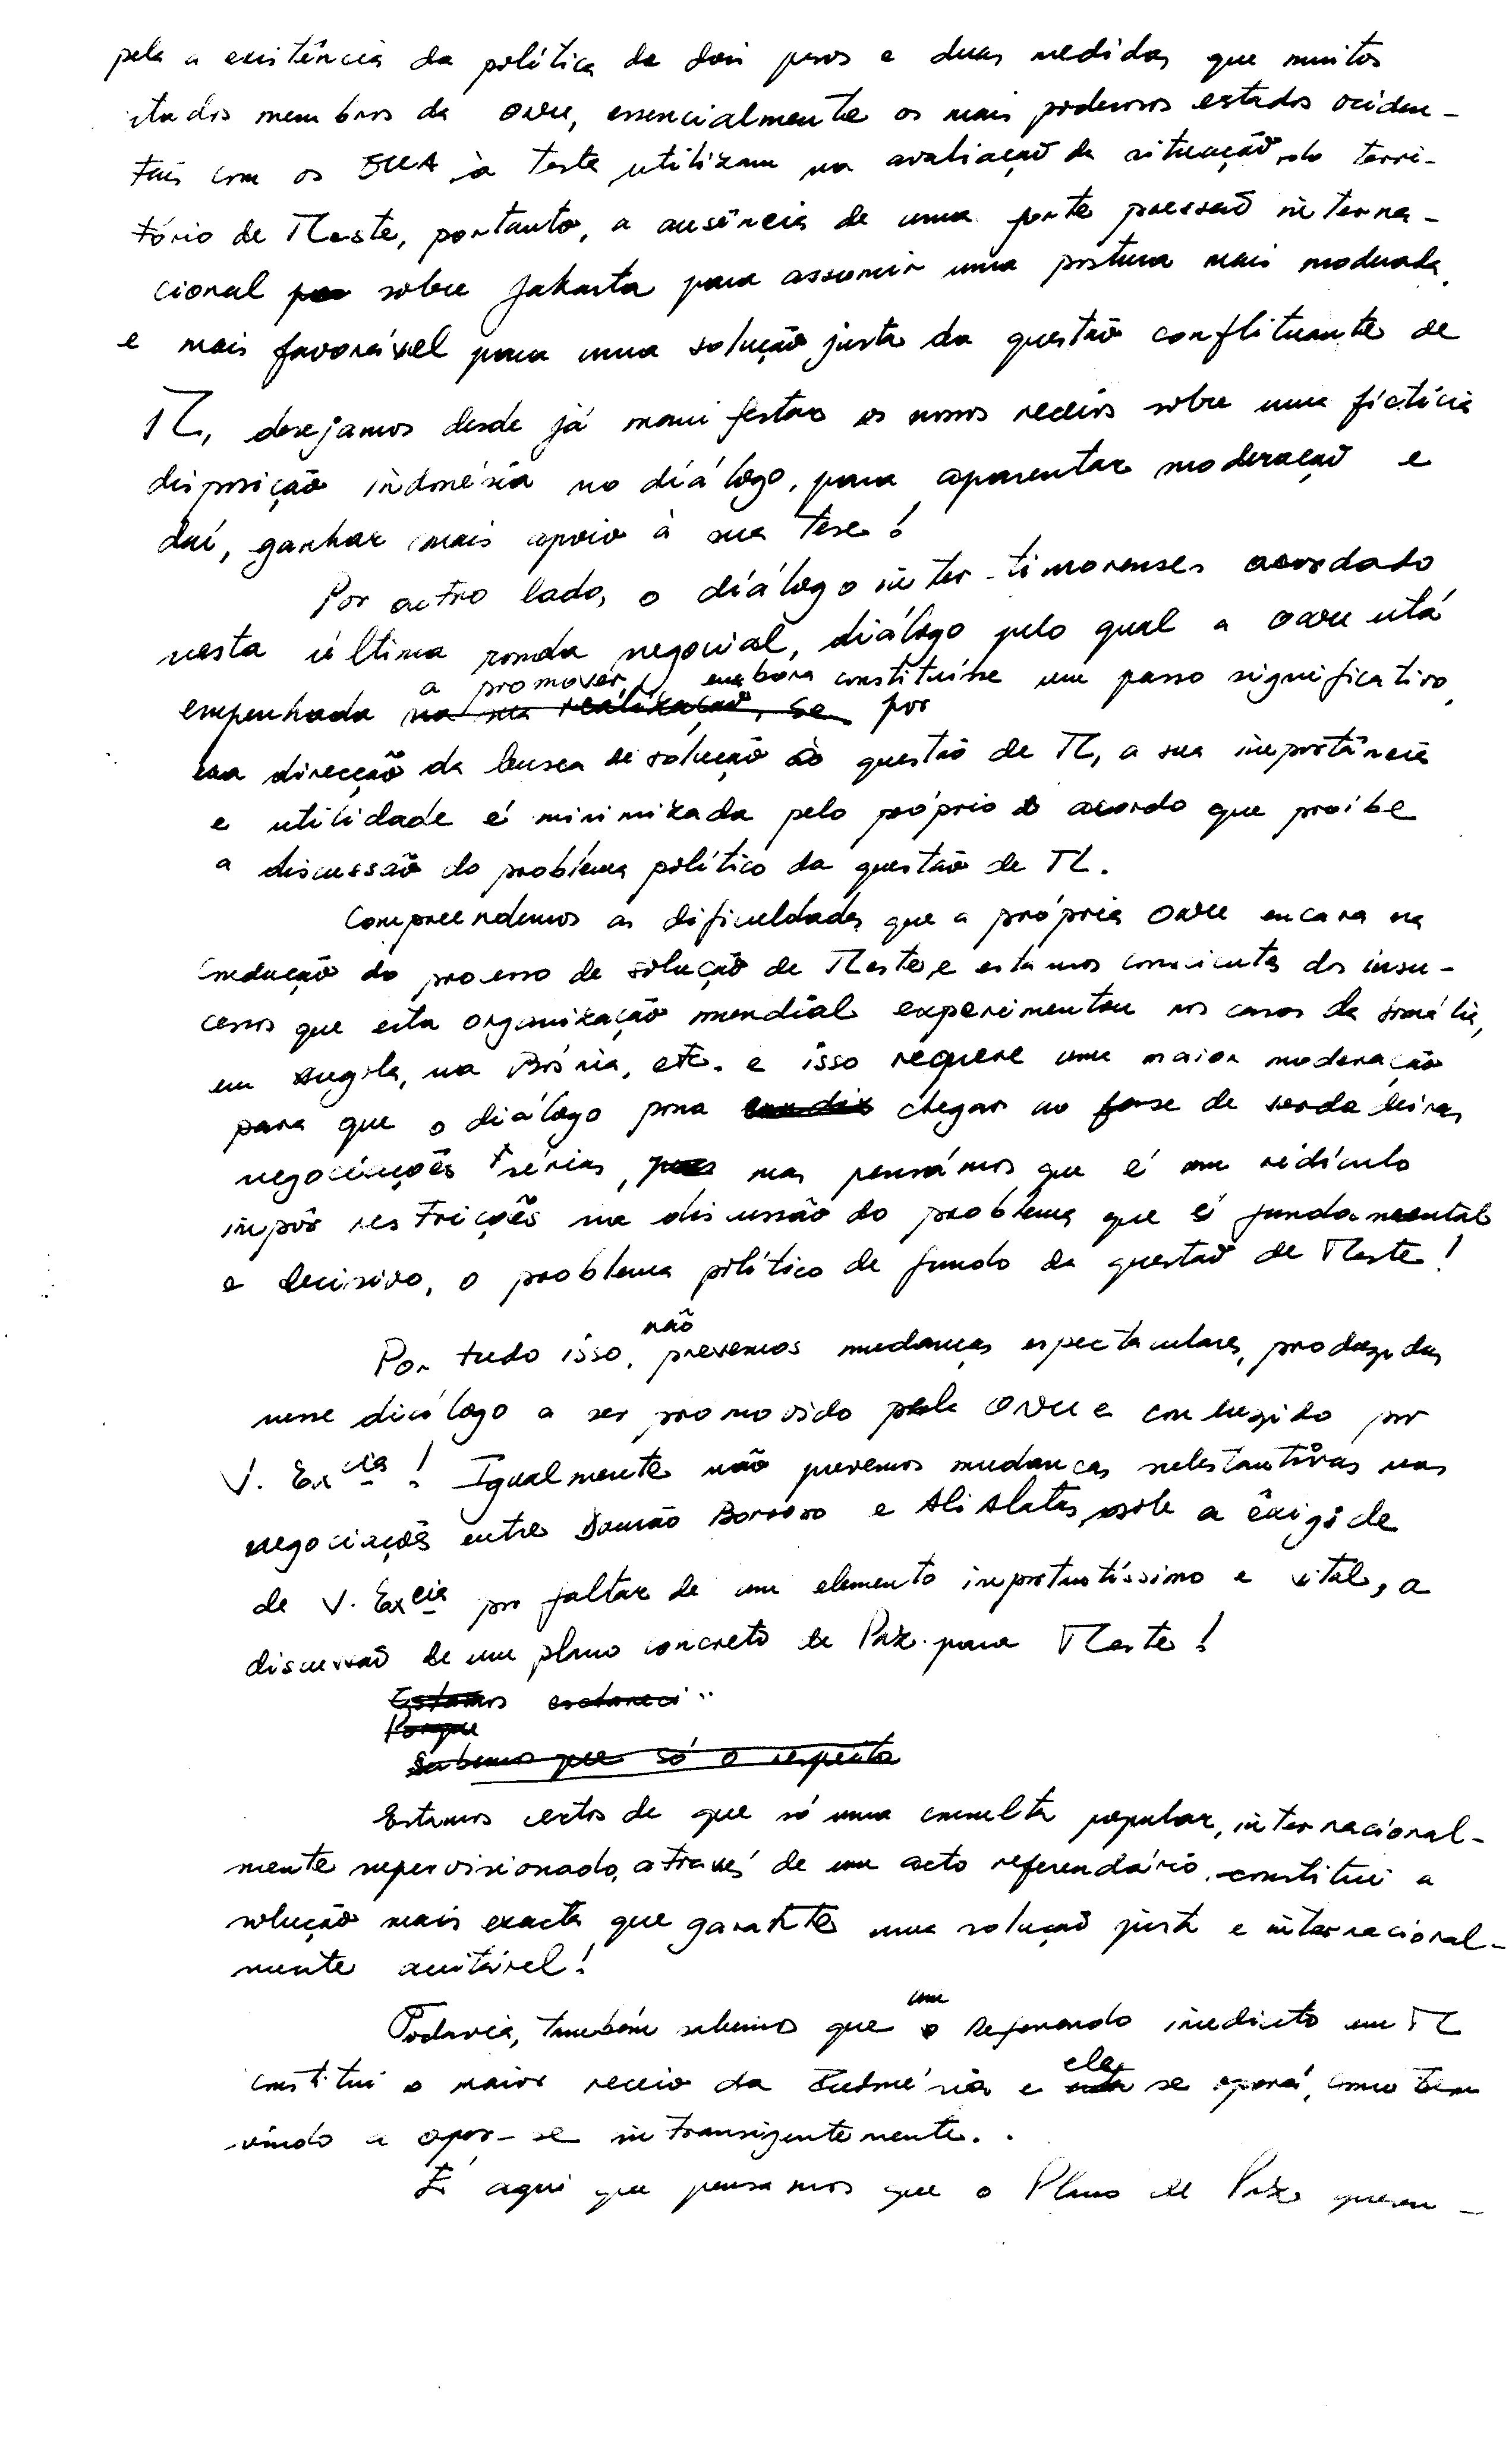 pela a existência da política de dois pesos e duas medidas que muitos
estados membros da ONU, essencialmente os mais poderosos estados ociden-
tais com os EUA à testa utilizam na avaliação da situação do terri-
tório de TLeste, portanto, a ausência de uma forte pressão interna-
cional sobre Jakarta para assumir uma postura mais moderada
e mais favorável para uma solução justa da questão conflituante de
TL, desejamos desde já manifestar os nossos receios sobre uma fictícia
disposição indonésia no diálogo, para aparentar moderação e
daí, ganhar mais apoio à sua tese!
Por outro lado, o diálogo inter-timorenses acordado
nesta última ronda negocial, diálogo pelo qual a ONU está
a promover, embora constituisse um passo significativo,
empenhada na sua realização, se por
na direcção da busca de solução à questão de TL, a sua importância
e utilidade é minimizada pelo próprio acordo que proíbe
a discussão do problema político da questão de TL.
Compreendemos as dificuldades que a própria ONU encara na
condução do processo de solução de TLeste e estamos conscientes dos insu-
cessos que esta organização mundial experimentou nos casos da Somália,
em Angola, na Bósnia, etc. e isso requere uma maior moderação
para que o diálogo possa chegar ao fase de verdadeiras
negociações sérias, mas pensámos que é um ridículo
impôr restrições na discussão do problema que é fundamental
e decisivo, o problema político de fundo da questão de TLeste!
não
Por tudo isso, prevemos mudanças espectaculares, produzidas
nesse diálogo a ser promovido pela ONU e conduzido por
V. Ex.cia! Igualmente não prevemos mudanças substantivas nas
negociações entre Durão Barroso e Ali Alatas, sob a êxigide
de V. Excia por faltar de um elemento importantíssimo e vital, a
discussão de um plano concreto de Paz para TLeste!
Estamos esclareci
Porque
Sabemos que só o respeito
Estamos certos de que só uma consulta popular, internacional-
mente supervisionado, através de um acto referendário, constitui a
solução mais exacta que garante uma solução justa e internacional-
mente aceitável!
um
Todavia, também sabemos que o Referendo imediato em TL
ela
constitui o maior receio da Indonésia e esta se oporá, como tem
vindo a opor-se intransigentemente.
É aqui que pensamos que o Plano de Paz